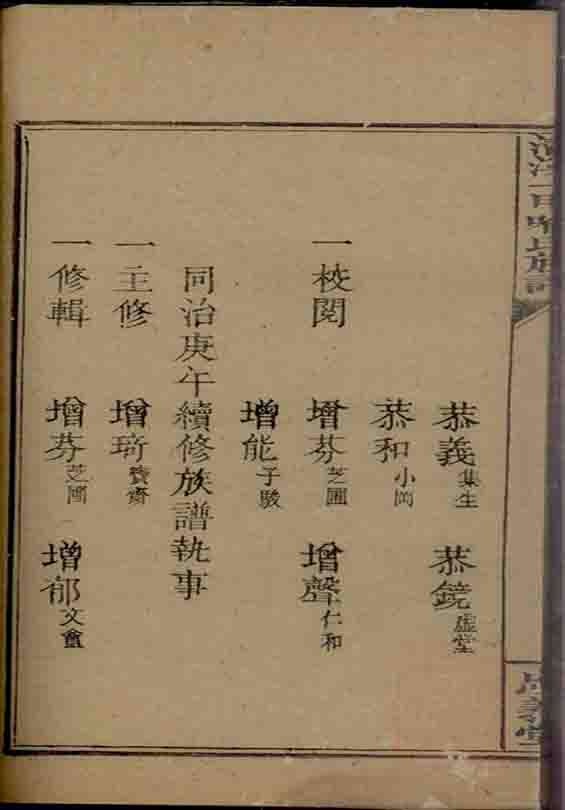 恭義 集生 恭鏡 虛堂
恭和 小岡
一校閱 增芬 芝圃 增聲 仁和
增能 子駿
同治庚午續修族譜執事
一主修 增琦 齋
一修輯 增芬 芝圃 增郁 文
氏族
堂